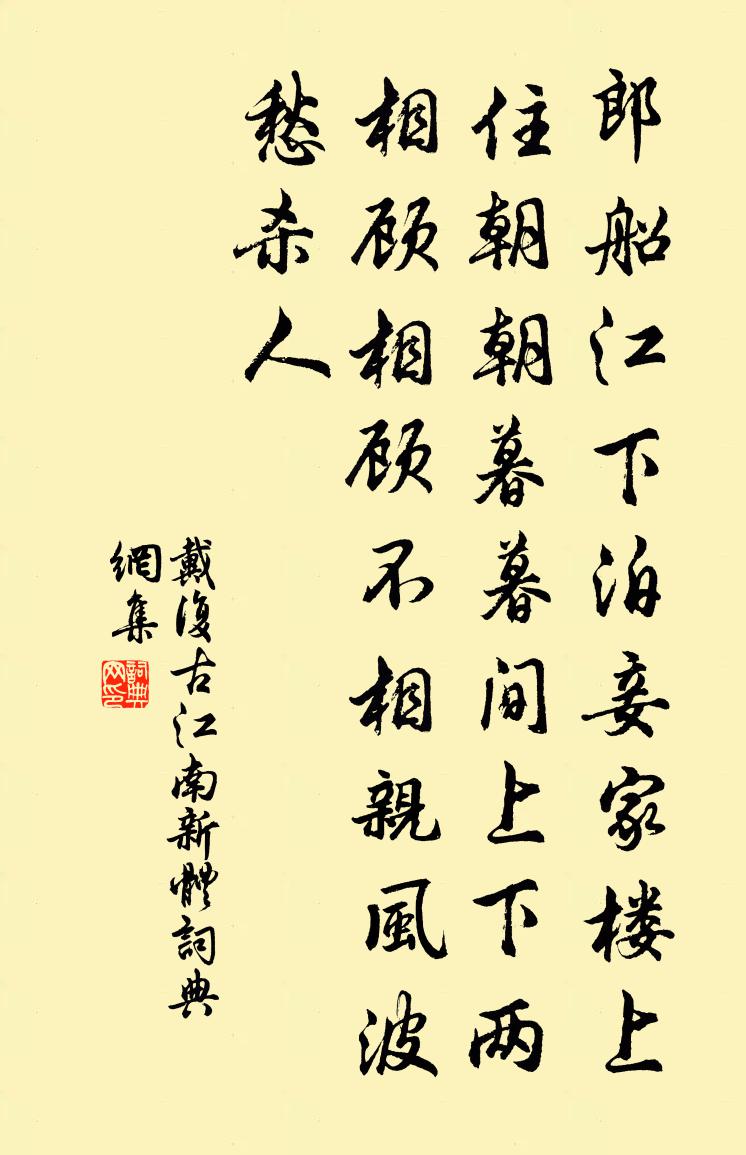 郎船江下泊妾家楼上
住朝朝暮暮间上下两
相顾相顾不相親風波
愁杀人
戴復古江南新體詞典
網集
詞典
网印